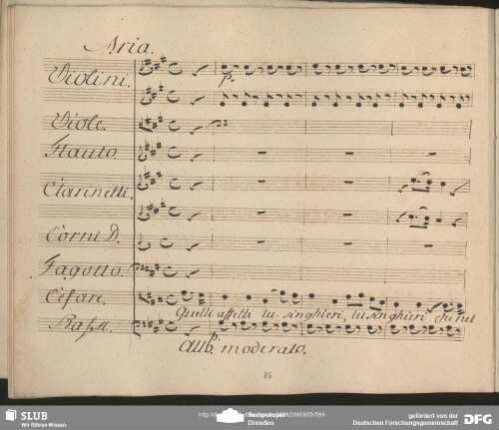 Aria.
Violini.
p.
Viole.
Flauto.
Clarinetti.
Corni D.
Fagotto.
Cesare.
Quelli affetti lu singhieri, lusinghieri che nel
Bassi.
All.º moderato.
SLUB
Wir führen Wissen.
Dresden
gefördert von der
Deutschen Forschungsgemeinschaft
DFG